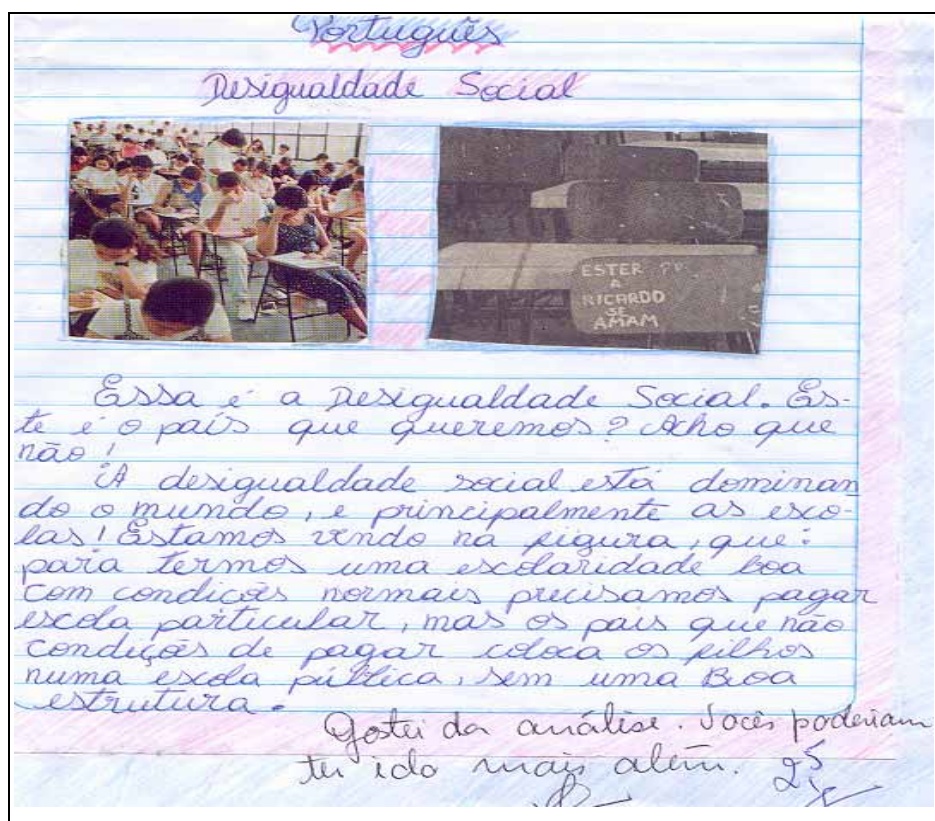 Português
Desigualdade Social
ESTER
A
RICARDO
SE
AMAM
Essa é a Desigualdade Social. Es-
te é o país que queremos? Acho que
não!
A desigualdade social está dominan
do o mundo, e principalmente as esco-
las! Estamos vendo na figura, que:
para termos uma escolaridade boa
com condições normais precisamos pagar
escola particular, mas os pais que não
condições de pagar coloca os filhos
numa escola pública, sem uma Boa
estrutura.
Gostei da análise. Vocês poderiam
ter ido mais além.